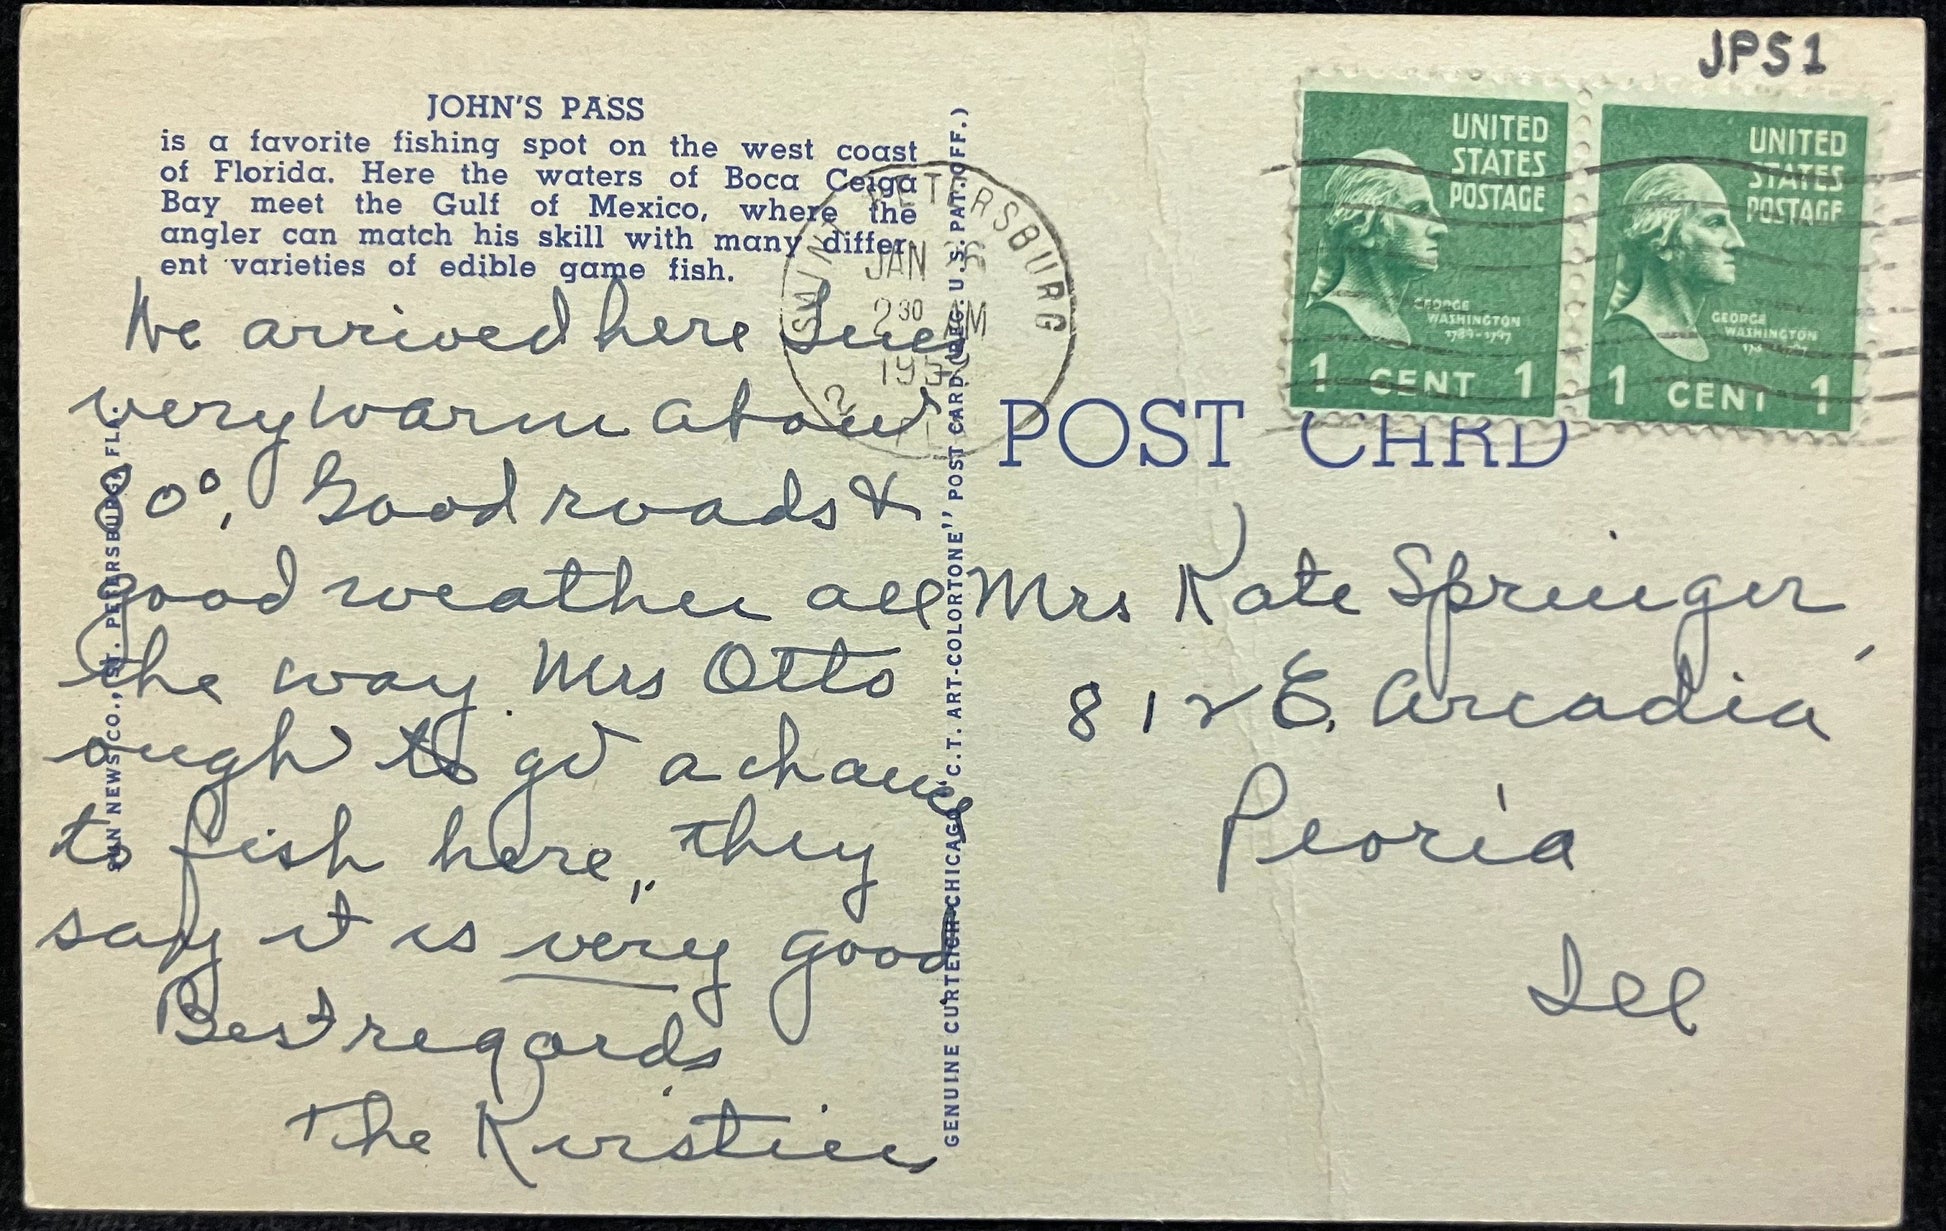 JPS1
JOHN'S PASS
is a favorite fishing spot on the west coast
of Florida. Here the waters of Boca Ceiga
Bay meet the Gulf of Mexico, where the
angler can match his skill with many differ-
ent varieties of edible game fish.
We arrived here Tues
very warm about
80°, Good roads &
good weather all
the way. Mrs Otto
ough to get a chance
to fish here, they
say it is very good
Best regards
The Kirstiens
SUN NEWS CO., ST. PETERSBURG, FLA.
GENUINE CURTEICH-CHICAGO "C.T. ART-COLORTONE" POST CARD (REG. U.S. PAT. OFF.)
SAINT PETERSBURG
JAN
2 30 PM
2
UNITED
STATES
POSTAGE
GEORGE
WASHINGTON
1789-1797
1 CENT 1
UNITED
STATES
POSTAGE
GEORGE
WASHINGTON
1 CENT 1
POST CARD
Mrs Kate Springer,
812 E. Arcadia
Peoria
Ill